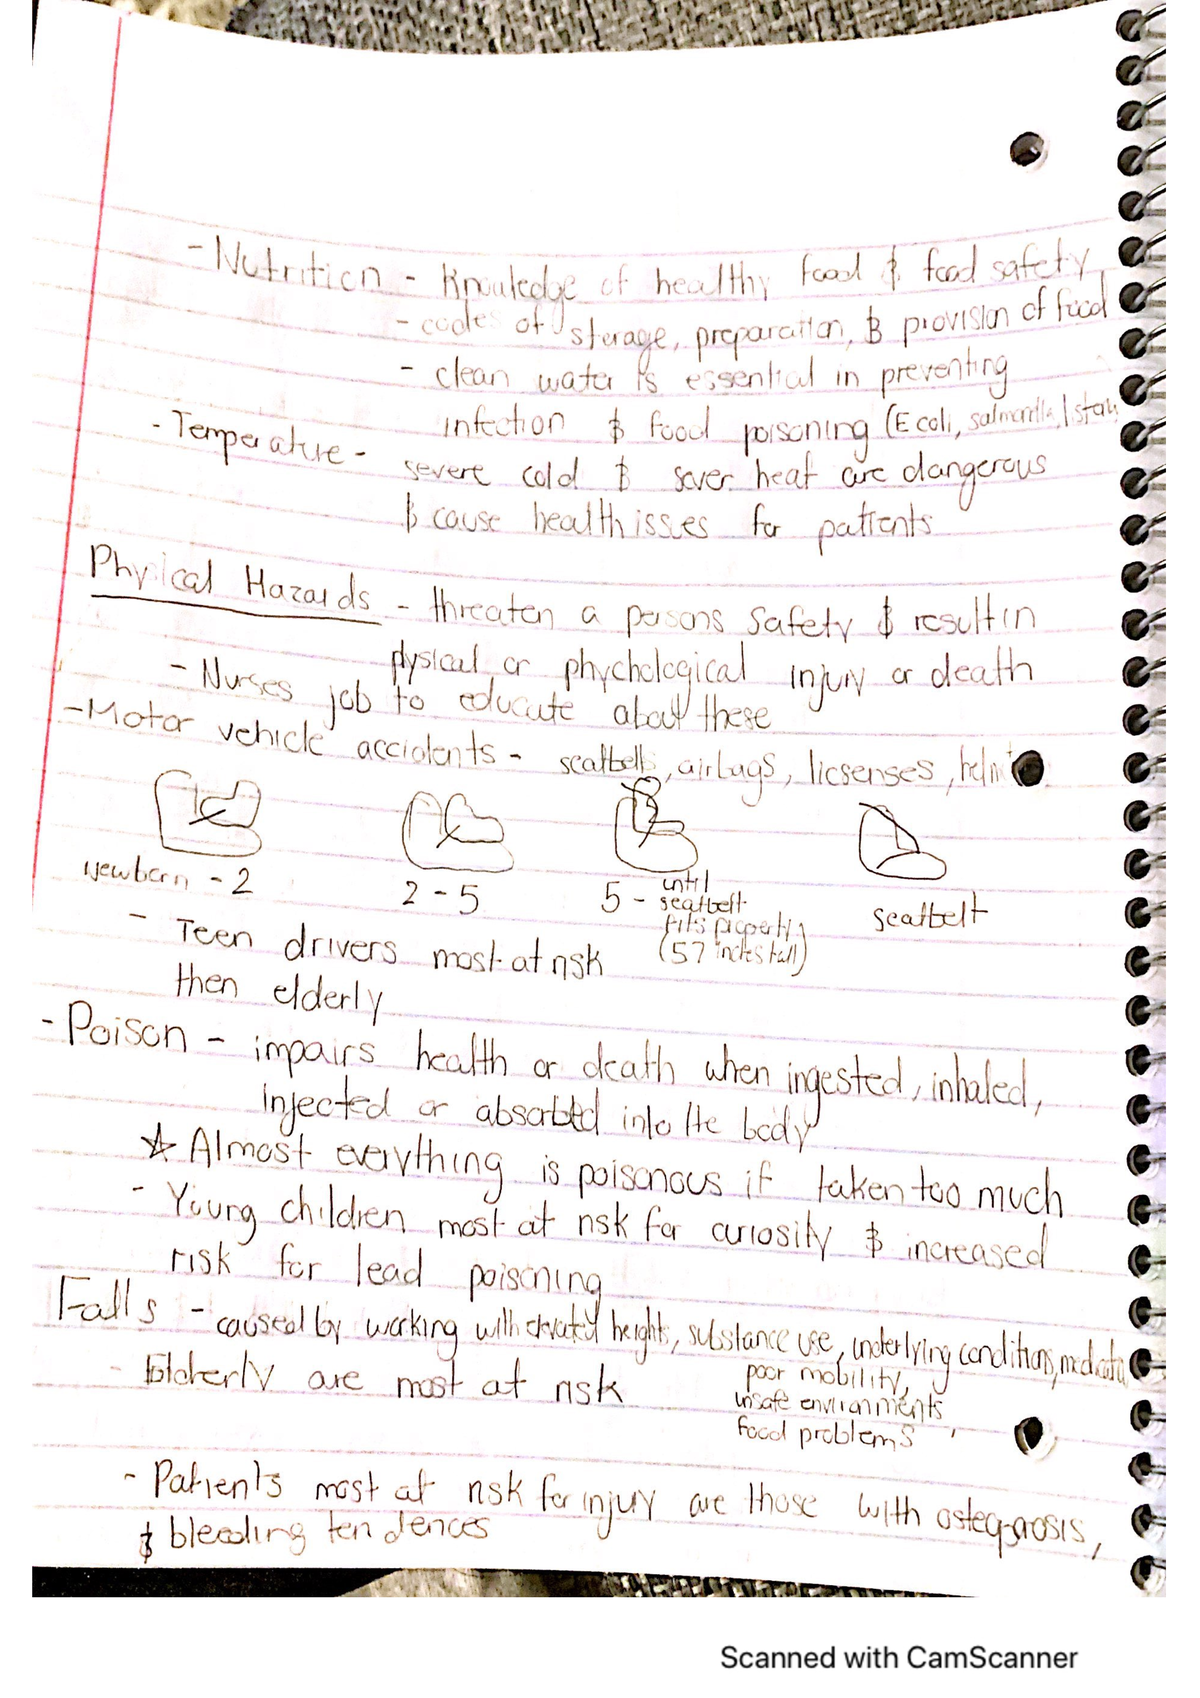 - Nutrition - knowledge of healthy food & food safety,
- codes of storage, preparation, & provision of food
- clean water is essential in preventing
infection & food poisoning (E coli, salmonella,
- Temperature - severe cold & sever heat are dangerous
& cause health isses for patients
Physical Hazards - threaten a persons safety & result in
physical or phychological injury or death
- Nurses job to educate about these
- Motor vehicle accidents - seatbelts, airbags, licsenses,
Newborn - 2
2 - 5
5 - until
seatbelt
fits properly
(57 inches tall)
seatbelt
- Teen drivers most at risk
then elderly
- Poison - impairs health or death when ingested, inhaled,
injected or absorbed into the body
☆ Almost everything is poisonous if taken too much
- Young children most at risk for curiosity & increased
risk for lead poisoning
Falls - caused by working with elevated heights, substance use, underlying conditions,
poor mobility,
unsafe environments,
food problems
- Elderly are most at risk
- Patients most at risk for injury are those with osteoporosis,
& bleeding tendences
Scanned with CamScanner